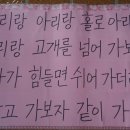 리랑 아리랑 홀로 아리
리랑 고개를 넘어 가보
가 힘들면 쉬어 가더
고 가보자 같이 가